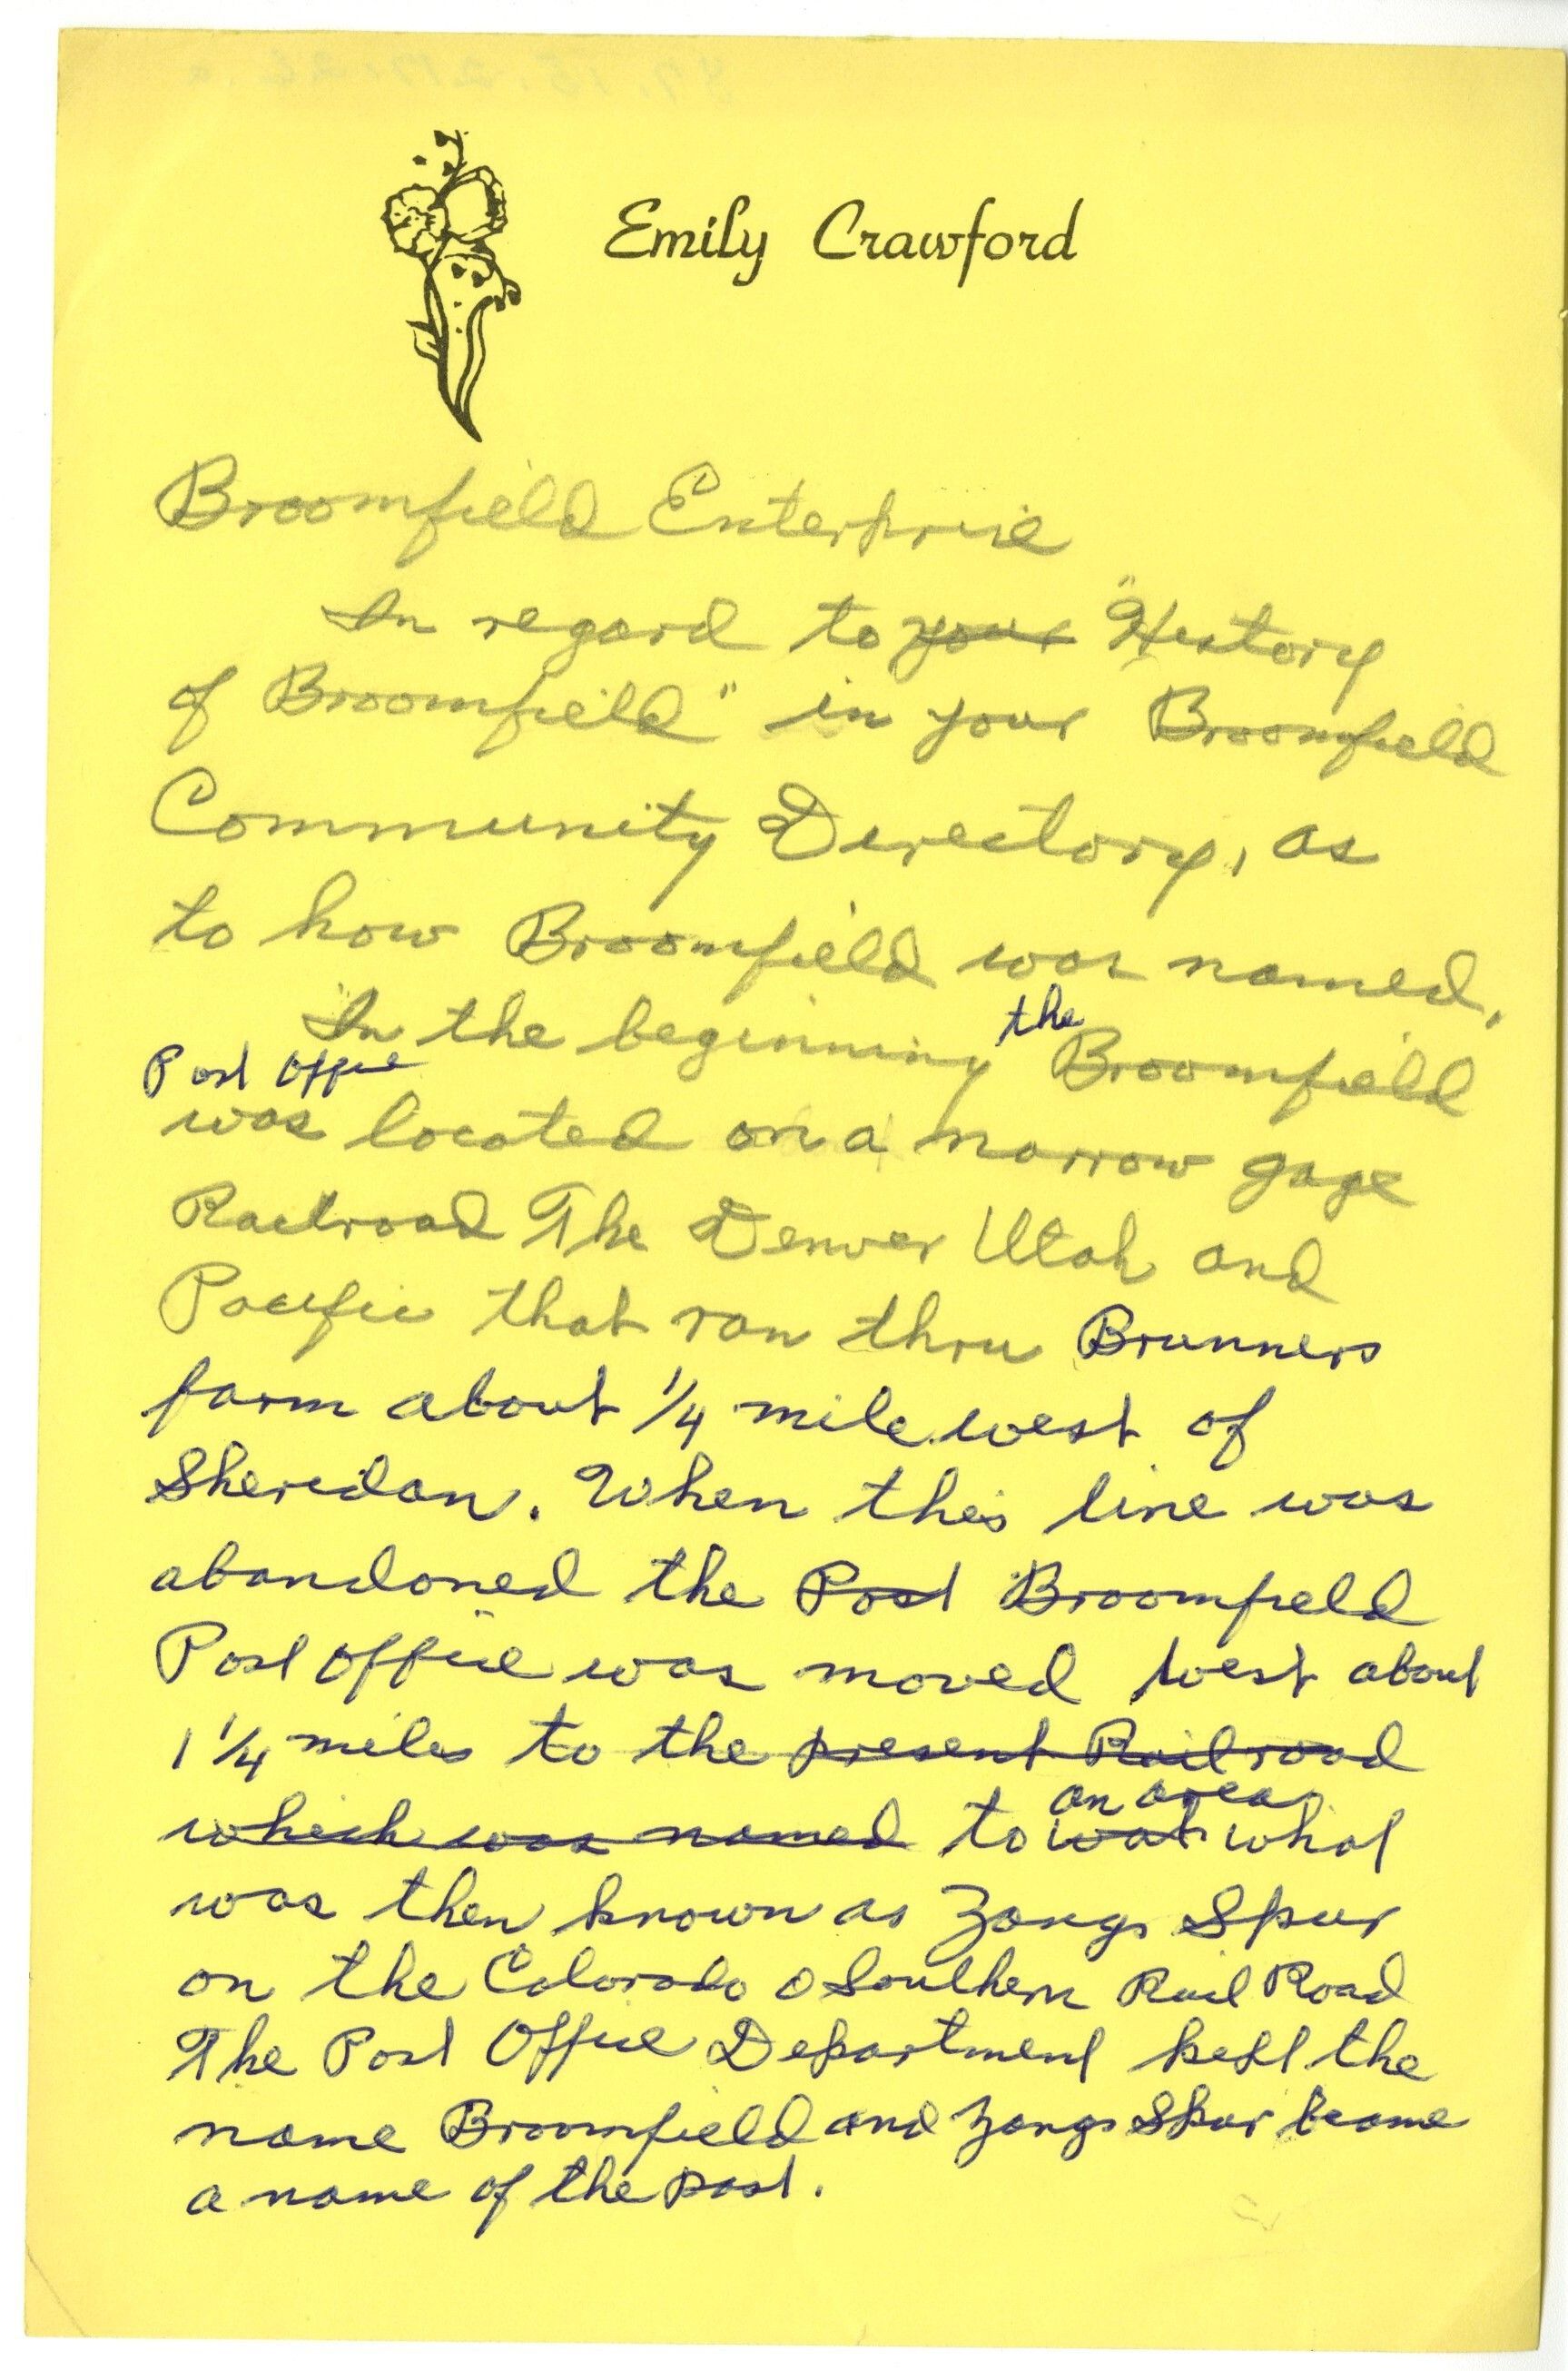 Emily Crawford
Broomfield Enterprise
In regard to your "History
of Broomfield" in your Broomfield
Community Directory, as
to how Broomfield was named.
In the beginning the Broomfield
Post Office
was located on a narrow gage
Railroad The Denver Utah and
Pacific that ran thru Brunners
farm about 1/4 mile west of
Sheridan. When this line was
abandoned the Post Broomfield
Post Office was moved west about
1 1/4 miles to the present Railroad
an area
which was named to wat what
was then known as Zangs Spur
on the Colorado & Southern Rail Road
The Post Office Department kept the
name Broomfield and Zangs Spur became
a name of the past.